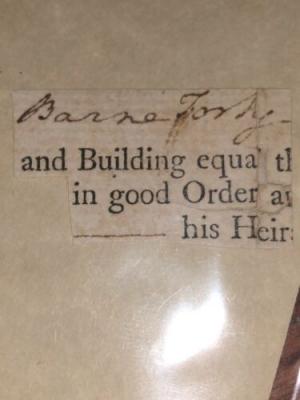 Barne Forty
and Building equal th
in good Order an
his Heirs